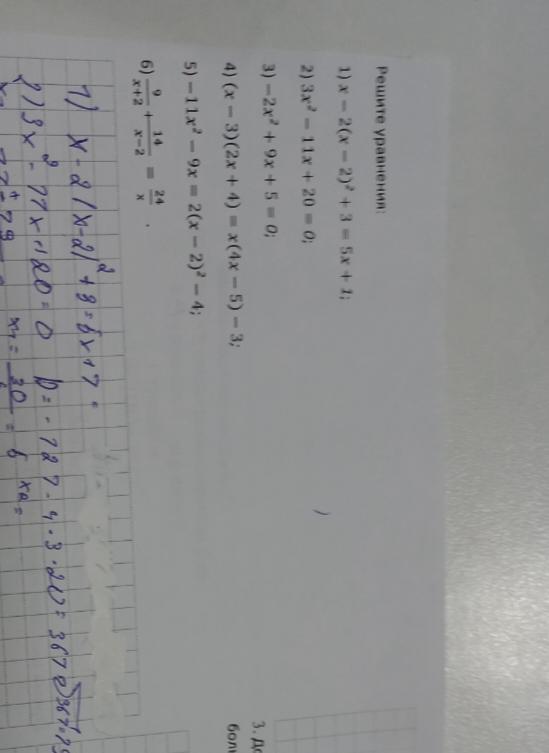 Решите уравнения:
1) x − 2(x − 2)² + 3 = 5x + 1;
2) 3x² − 11x + 20 = 0;
3) −2x² + 9x + 5 = 0;
4) (x − 3)(2x + 4) = x(4x − 5) − 3;
5) −11x² − 9x = 2(x − 2)² − 4;
6) 9/(x+2) + 14/(x−2) = 24/x .
3. До
боль
1) x - 2(x-2)² + 3 = 5x + 1
2) 3x² - 11x + 20 = 0 D = - 121 - 4 · 3 · 20 = 361
x₁ = 30/6 = 5 x₂ =